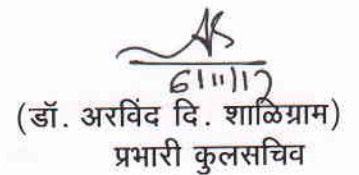 6/11/17
(डॉ. अरविंद दि. शाळिग्राम)
प्रभारी कुलसचिव